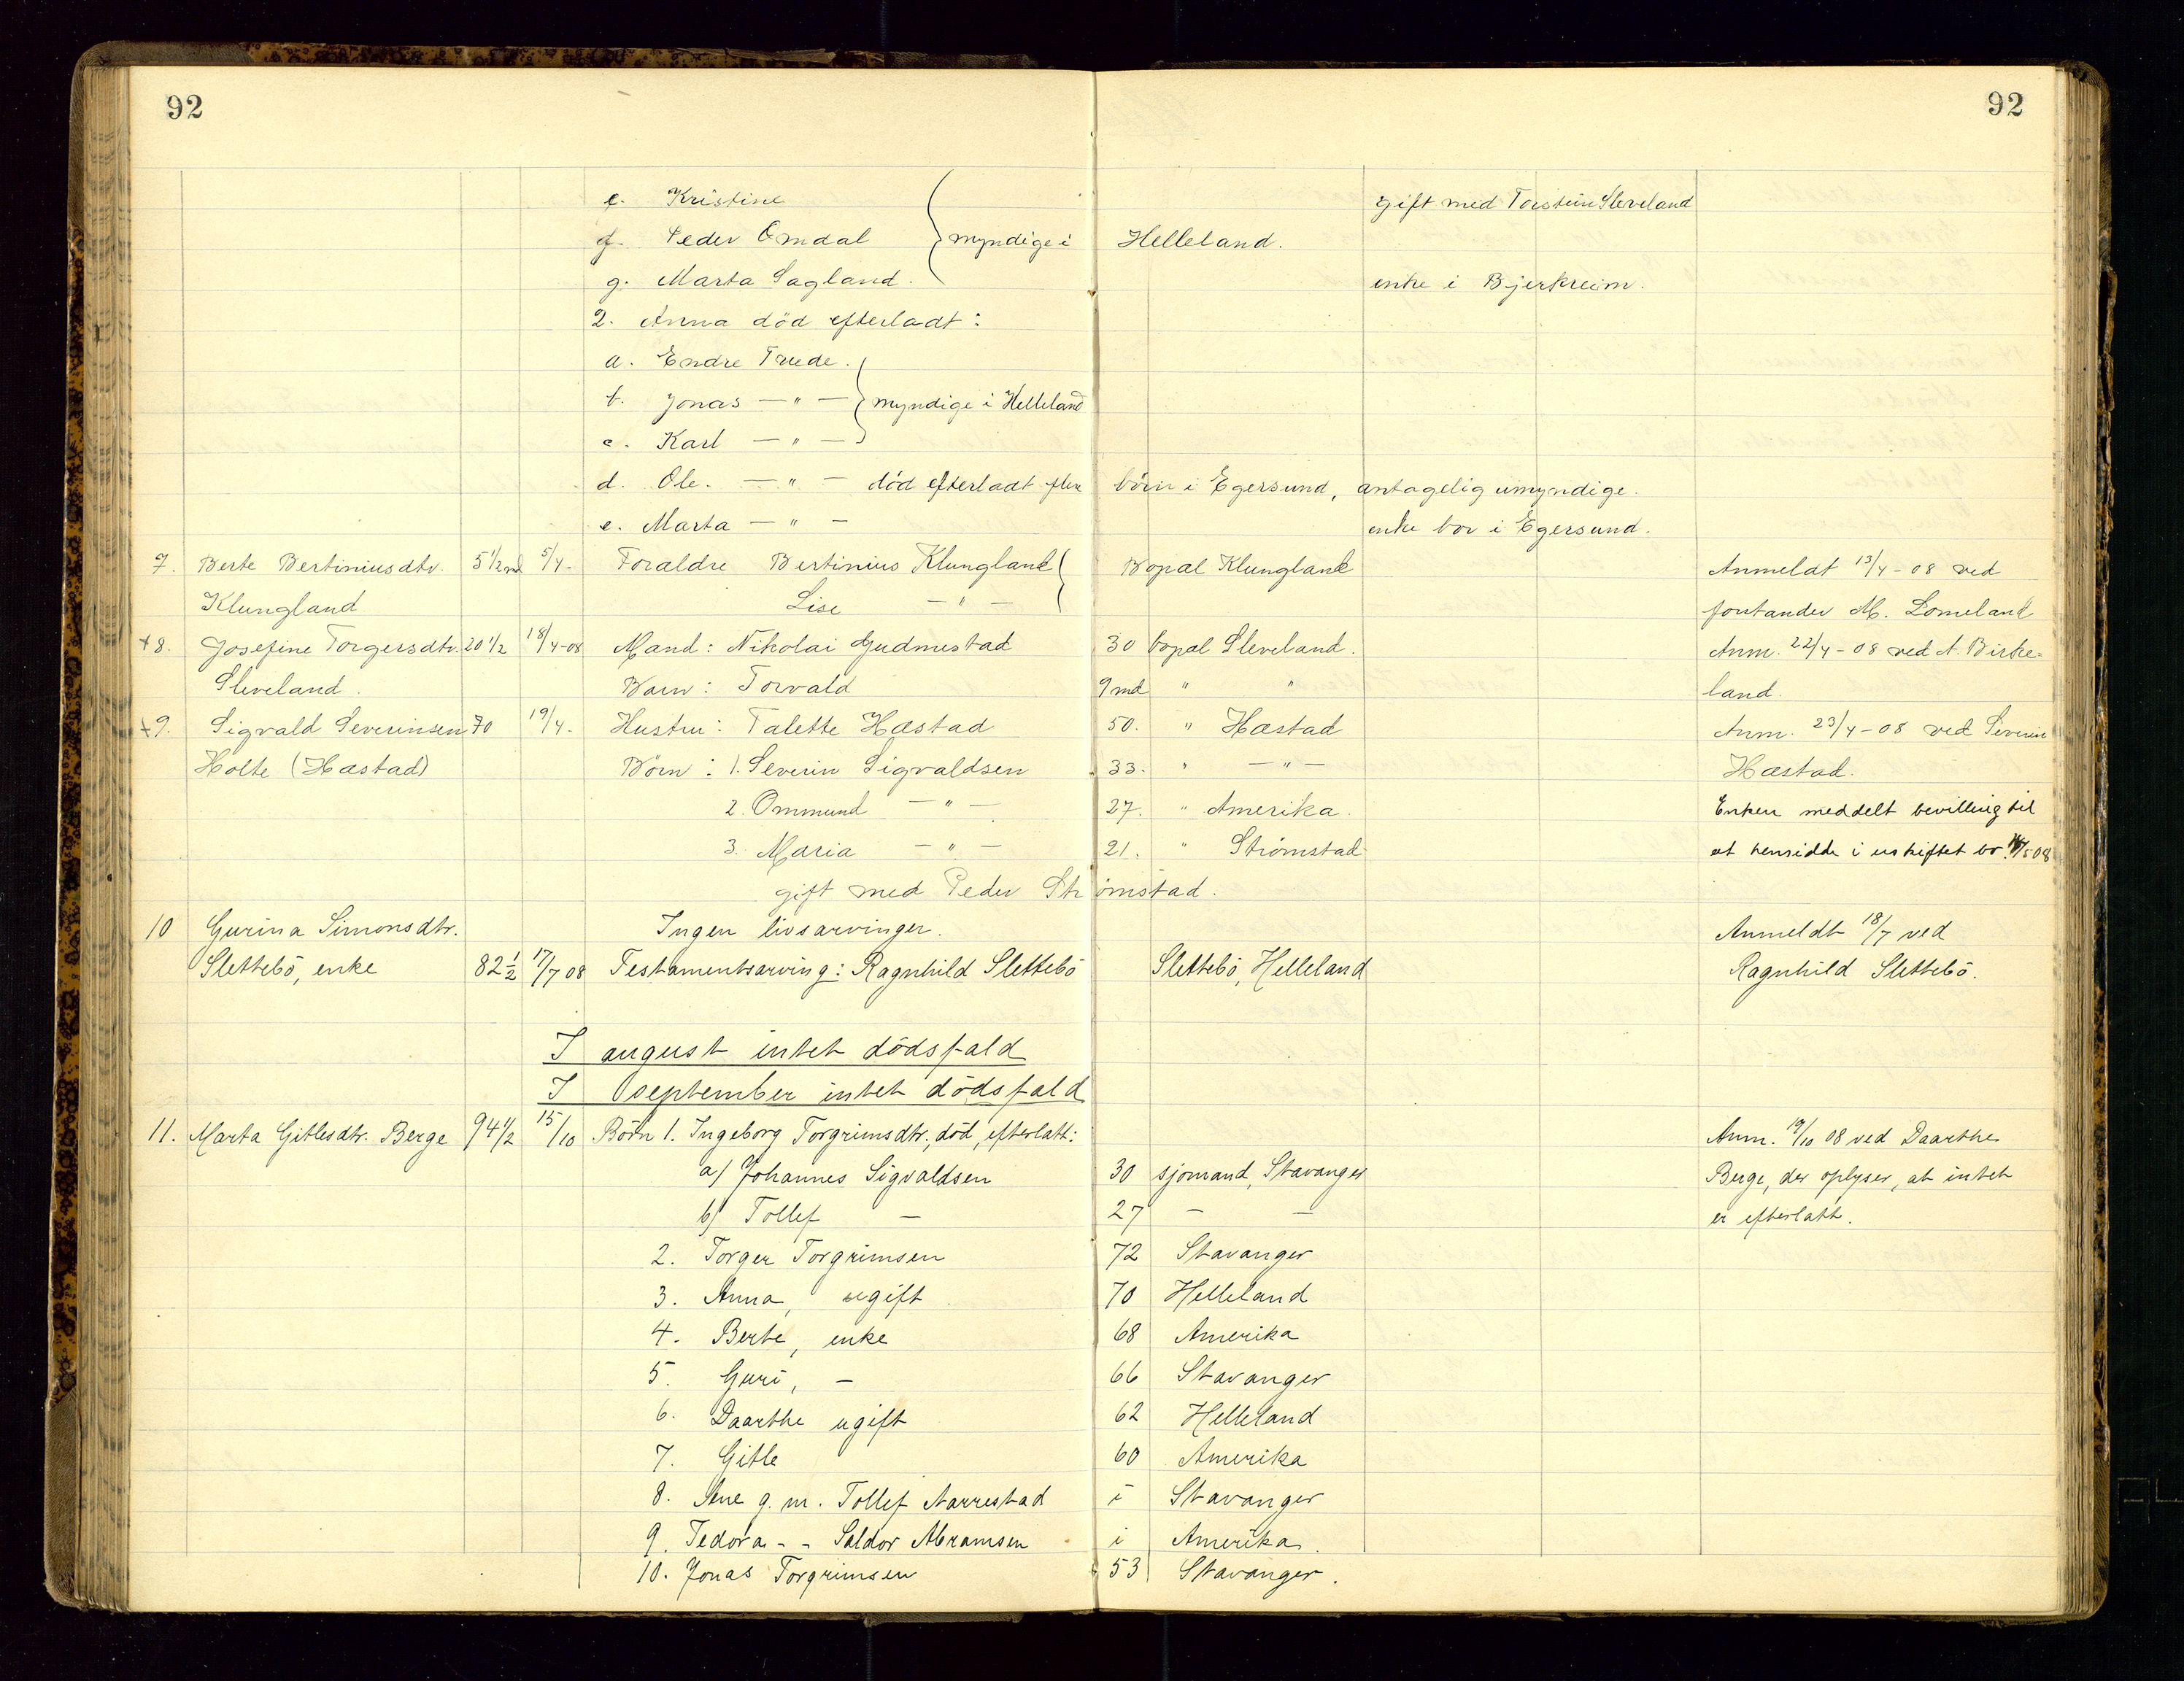 92 92
e. Kristine gift med Torstein Sleveland
f. Peder Omdal myndige i Helleland.
g. Marta Sagland. enke i Bjerkreim.
2. Anna död efterladt:
a. Endre Trude.
b. Jonas — " — myndige i Helleland
c. Karl — " —
d. Ole. — " — död efterladt flere börn i Egersund, antagelig umyndige.
e. Marta — " — enke bor i Egersund.
7. Berte Bertiniusdtr. 5 1/2 md 5/4- Foraldre Bertinius Klungland Bopal Klungland Anmeldt 13/4-08 ved
Klungland Lise — " — forstander M. Lomeland
+8. Josefine Torgersdtr. 20 1/2 18/4-08 Mand: Nikolai Gudmestad 30 bopal Sleveland. Anm. 22/4-08 ved A. Birke=
Sleveland. Barn: Torvald 9 md " " land.
+9. Sigvald Severinsen 70 19/4. Hustru: Talette Hæstad 50. " Hæstad Anm. 23/4-08 ved Severin
Holte (Hæstad) Börn: 1. Severin Sigvaldsen 33. " — " — Hæstad.
2. Ommund — " — 27. " Amerika. Enken meddelt bevilling til
3. Maria — " — 21. " Strömstad at hensidde i uskiftet bo. /5 08
gift med Peder Strömstad.
10 Gurina Simonsdtr. Ingen livsarvinger. Anmeldt 18/7 ved
Slettebö, enke 82 1/2 17/7 08 Testamentsarving: Ragnhild Slettebö Slettebö, Helleland Ragnhild Slettebö.
I august intet dödsfald
I september intet dödsfald
11. Marta Gitlesdtr. Berge 94 1/2 15/10 Börn 1. Ingeborg Torgrimsdtr., död, efterlatt: Anm. 19/10 08 ved Daarthe
a) Johannes Sigvaldsen 30 sjömand, Stavanger Berge, der oplyser, at intet
b) Tollef — 27 — — er efterlatt.
2. Torger Torgrimsen 72 Stavanger
3. Anna, ugift 70 Helleland
4. Berte, enke 68 Amerika
5. Guri, — 66 Stavanger
6. Daarthe ugift 62 Helleland
7. Gitle 60 Amerika
8. Sine g. m. Tollef Narrestad i Stavanger
9. Tedora - - Saldor Abramsen i Amerika.
10. Jonas Torgrimsen 53 Stavanger.